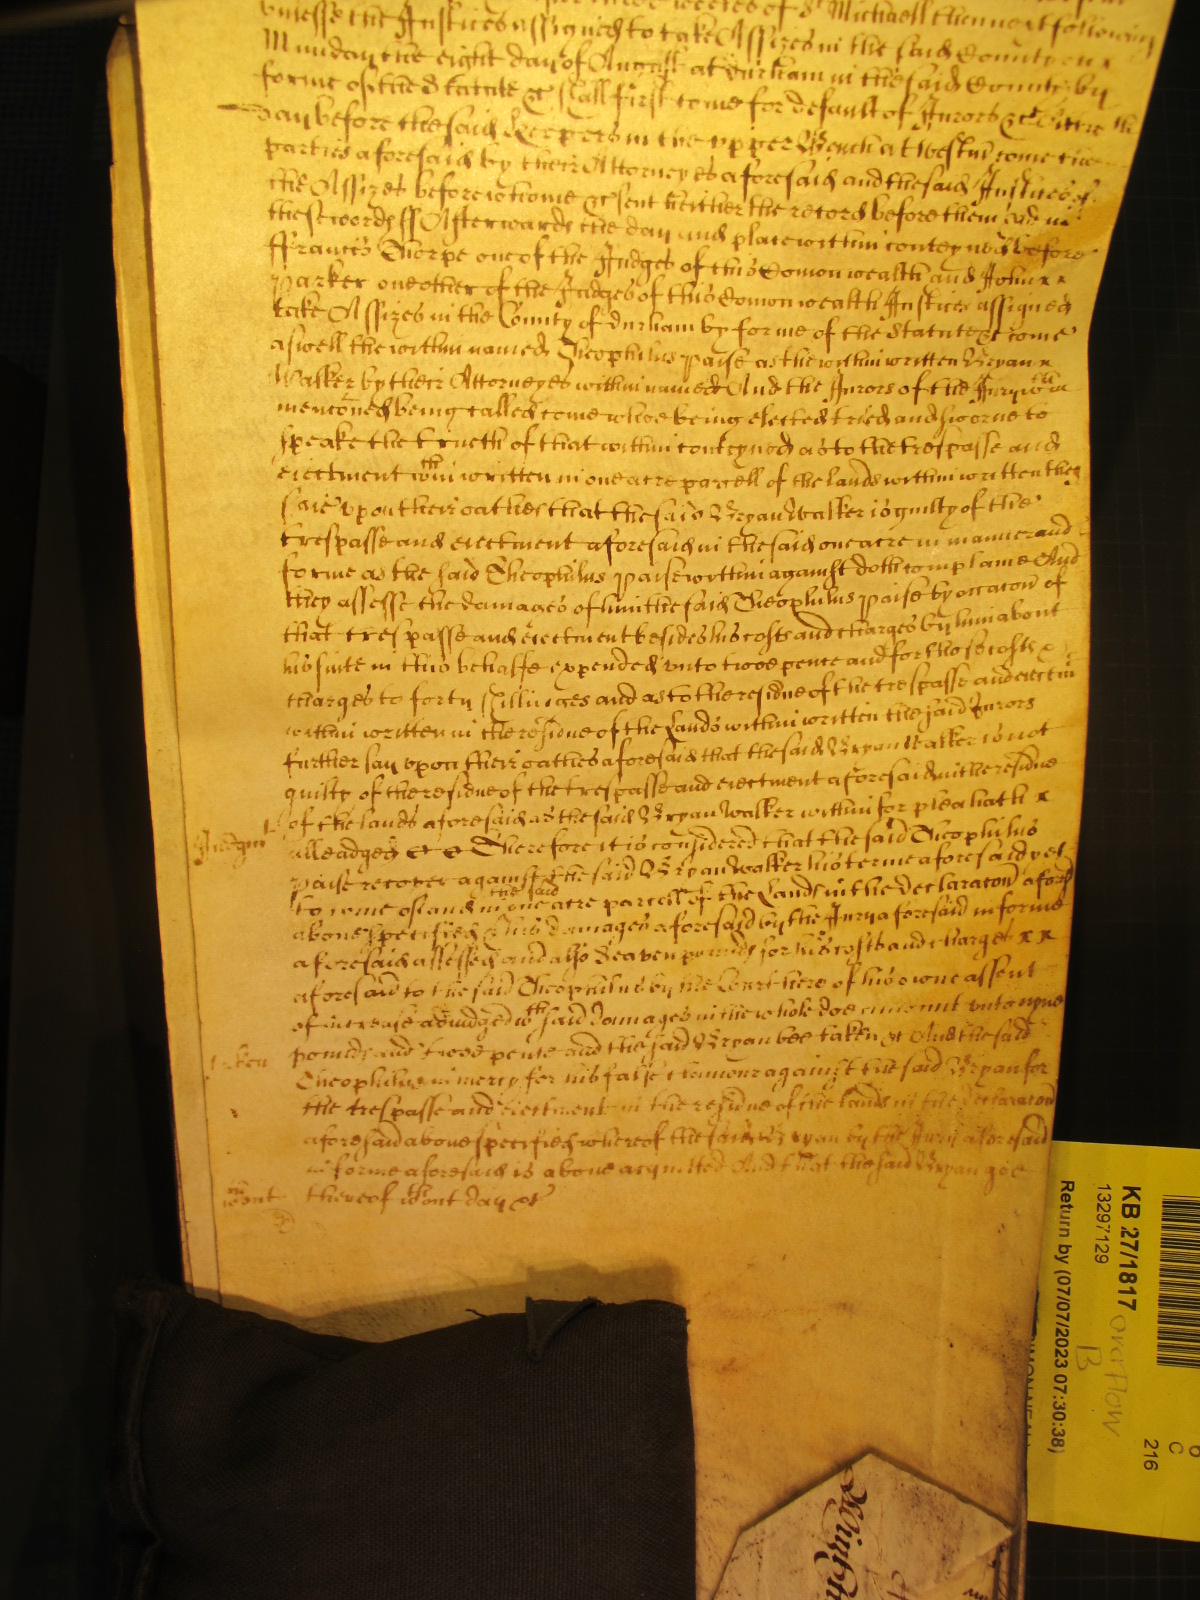 unlesse the Justices assigned to take Assizes in the said County on x
Munday the eight day of August at Durham in the said County by
forme of the Statute &c shall first come for default of Jurors &c Att
day before the said Keepers in the upper Bench at Westm come the
parties aforesaid by their Attorneyes aforesaid and the said Justices of
the Assizes before whome &c sent hither the record before them had in
these words ss Afterwards the day and place within conteyned before
ffrancis Thorpe one of the Judges of this Comonwealth and John x x
Parker one other of the Judges of this Comonwealth Justices assigned
take Assizes in the County of Durham by forme of the Statute &c come
aswell the within named Theophilus Paise as the within written Bryan x
Walker by their Attorneyes within named And the Jurors of the Jury wthin
menconed being called come whoe being elected tried and sworne to
speake the trueth of that within conteyned as to the trespasse and
eiectment wthin written in one acre parcell of the lands within written they
saie upon their oathes that the said Bryan Walker is guilty of the
trespasse and eiectment aforesaid in the said one acre in manner and
forme as the said Theophilus Paise within against doth complaine And
they assesse the damages of him the said Theophilus Paise by occacon of
that trespasse and eiectment besides his costs and charges by him about
his suite in this behalfe expended unto twoe pence and for those costs &
charges to forty shillinges and as to the residue of the trespasse and eiectmt
within written in the residue of the lands within written the said Jurors
further say upon their oathes aforesaid that the said Bryan Walker is not
guilty of the residue of the trespasse and eiectment aforesaid in the residue
of the lands aforesaid as the said Bryan Walker within for plea hath x
alleadged &c Therefore it is considered that the said Theophilus
Paise recover against the said Bryan Walker his terme aforesaid yet
to come of and in the said one acre parcell of the lands in the declaracon aforesd
above specified & his damages aforesaid by the Jury aforesaid in forme
aforesaid assessed and also Seaven pounds for his costs and charges x x
aforesaid to the said Theophilus by the Court here of his owne assent
of increase adiudged wth said damages in the whole doe amount unto nyne
taken pounds and twoe pence and the said Bryan bee taken &c And the said
Theophilus in mercy for his false clamour against the said Bryan for
the trespasse and eiectment in the residue of the lands in the declaracon
aforesaid above specified whereof the said Bryan by the Jury aforesaid
in forme aforesaid is above acquitted And that the said Bryan goe
thereof wthout day &c
KB 27/1817 overflow
13297129
B
Return by (07/07/2023 07:30:38)
216
C
6